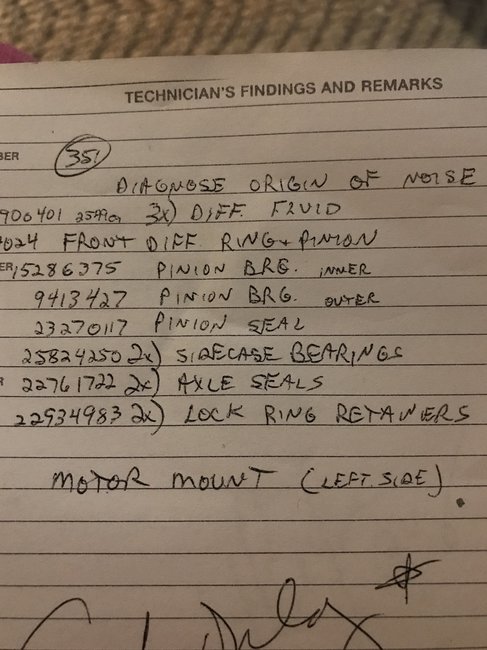 TECHNICIAN'S FINDINGS AND REMARKS
BER
351
DIAGNOSE ORIGIN OF NOISE
900401 3x) DIFF. FLUID
024 FRONT DIFF. RING + PINION
ER 15286375 PINION BRG. INNER
9413427 PINION BRG. OUTER
23270117 PINION SEAL
25824250 2x) SIDECASE BEARINGS
R 22761722 2x) AXLE SEALS
22934983 2x) LOCK RING RETAINERS
MOTOR MOUNT (LEFT SIDE)